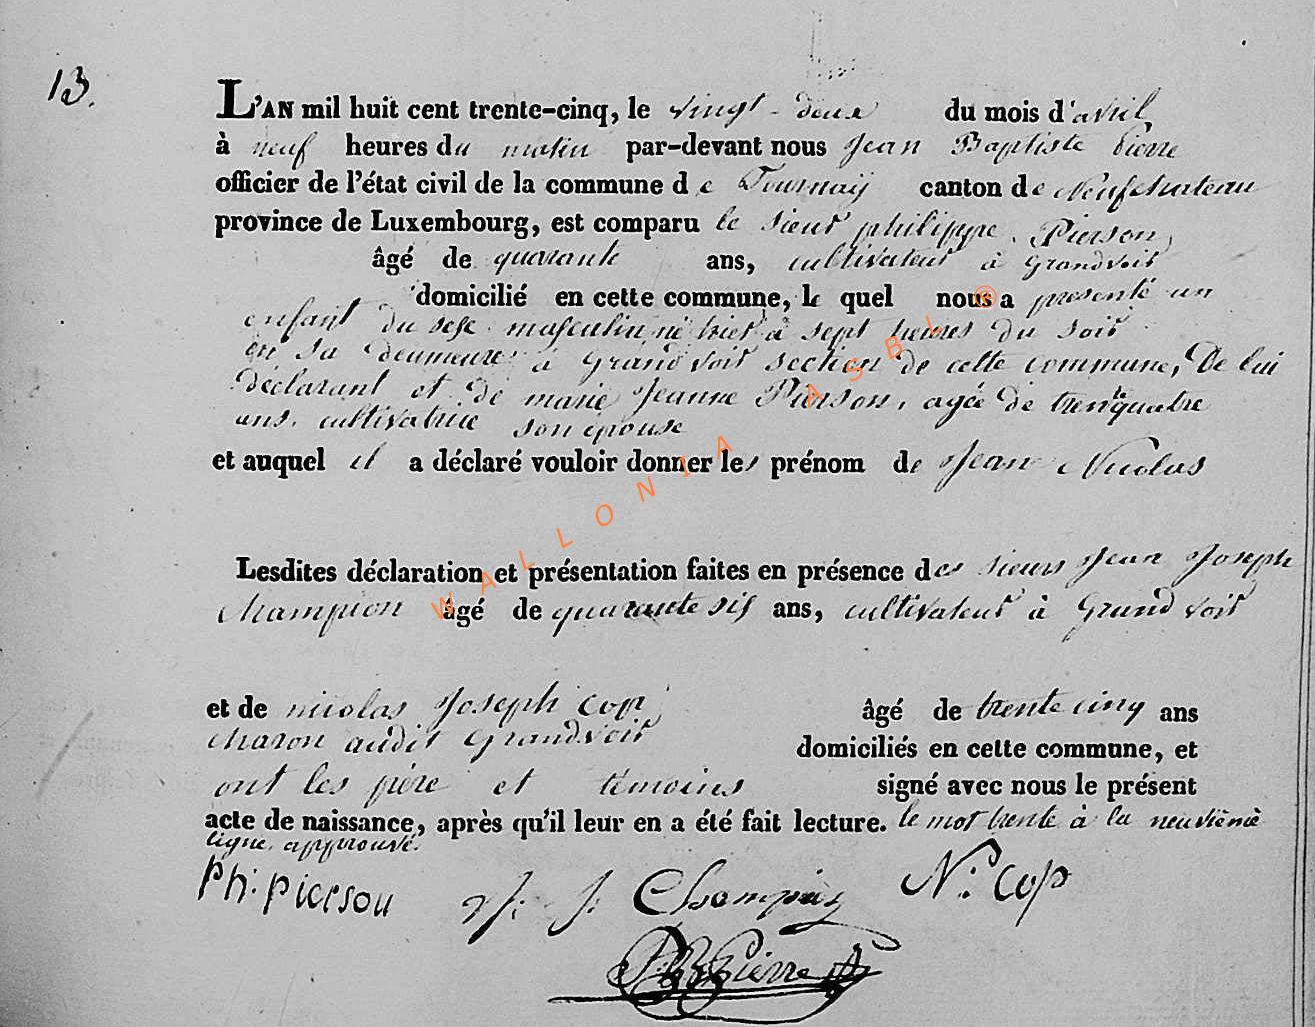 13.
L'AN mil huit cent trente-cinq, le vingt-deux du mois d'avril
à neuf heures du matin par-devant nous Jean Baptiste Pierre
officier de l'état civil de la commune de Tournaÿ canton de Neufchateau
province de Luxembourg, est comparu le sieur philippe Pierson,
âgé de quarante ans, cultivateur à Grandvoir
domicilié en cette commune, le quel nous a presenté un
enfant du sexe masculin, né hier à sept heures du soir
en sa deumeure à Grandvoir section de cette commune, De lui
déclarant et de marie Jeanne Pierson, agée de trente quatre
ans, cultivatrice son épouse
et auquel il a déclaré vouloir donner les prénom de Jean Nicolas
Lesdites déclaration et présentation faites en présence des sieurs Jean Joseph
Champion âgé de quarante six ans, cultivateur à Grandvoir
et de nicolas Joseph Cop âgé de trente cinq ans
charon audit Grandvoir domiciliés en cette commune, et
ont les père et témoins signé avec nous le présent
acte de naissance, après qu'il leur en a été fait lecture. le mot trente à la neuvième
ligne, approuvé.
Ph: Pierson J: J: Champion N: Cop
JB Pierre
WALLONIA ASBL ®